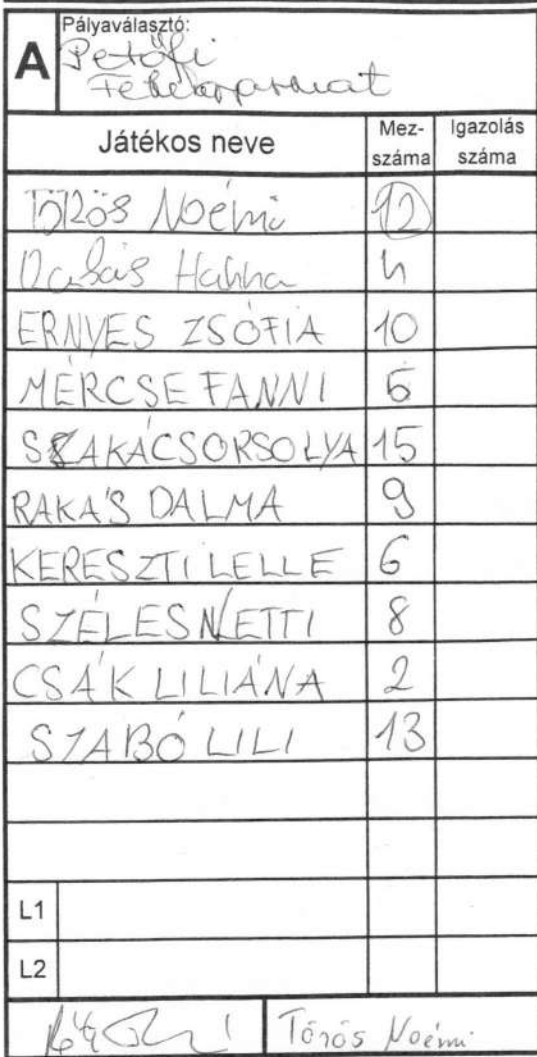 Pályaválasztó:
A Petőfi
Fehérgyarmat
Játékos neve Mez- száma Igazolás száma
Törös Noémi 12
Dabás Hanna 4
ERNYES ZSÓFIA 10
MÉRCSE FANNI 5
SZAKÁCS ORSOLYA 15
RAKÁS DALMA 9
KERESZTI LELLE 6
SZÉLES NETTI 8
CSÁK LILIÁNA 2
SZABÓ LILI 13
L1
L2
Törös Noémi